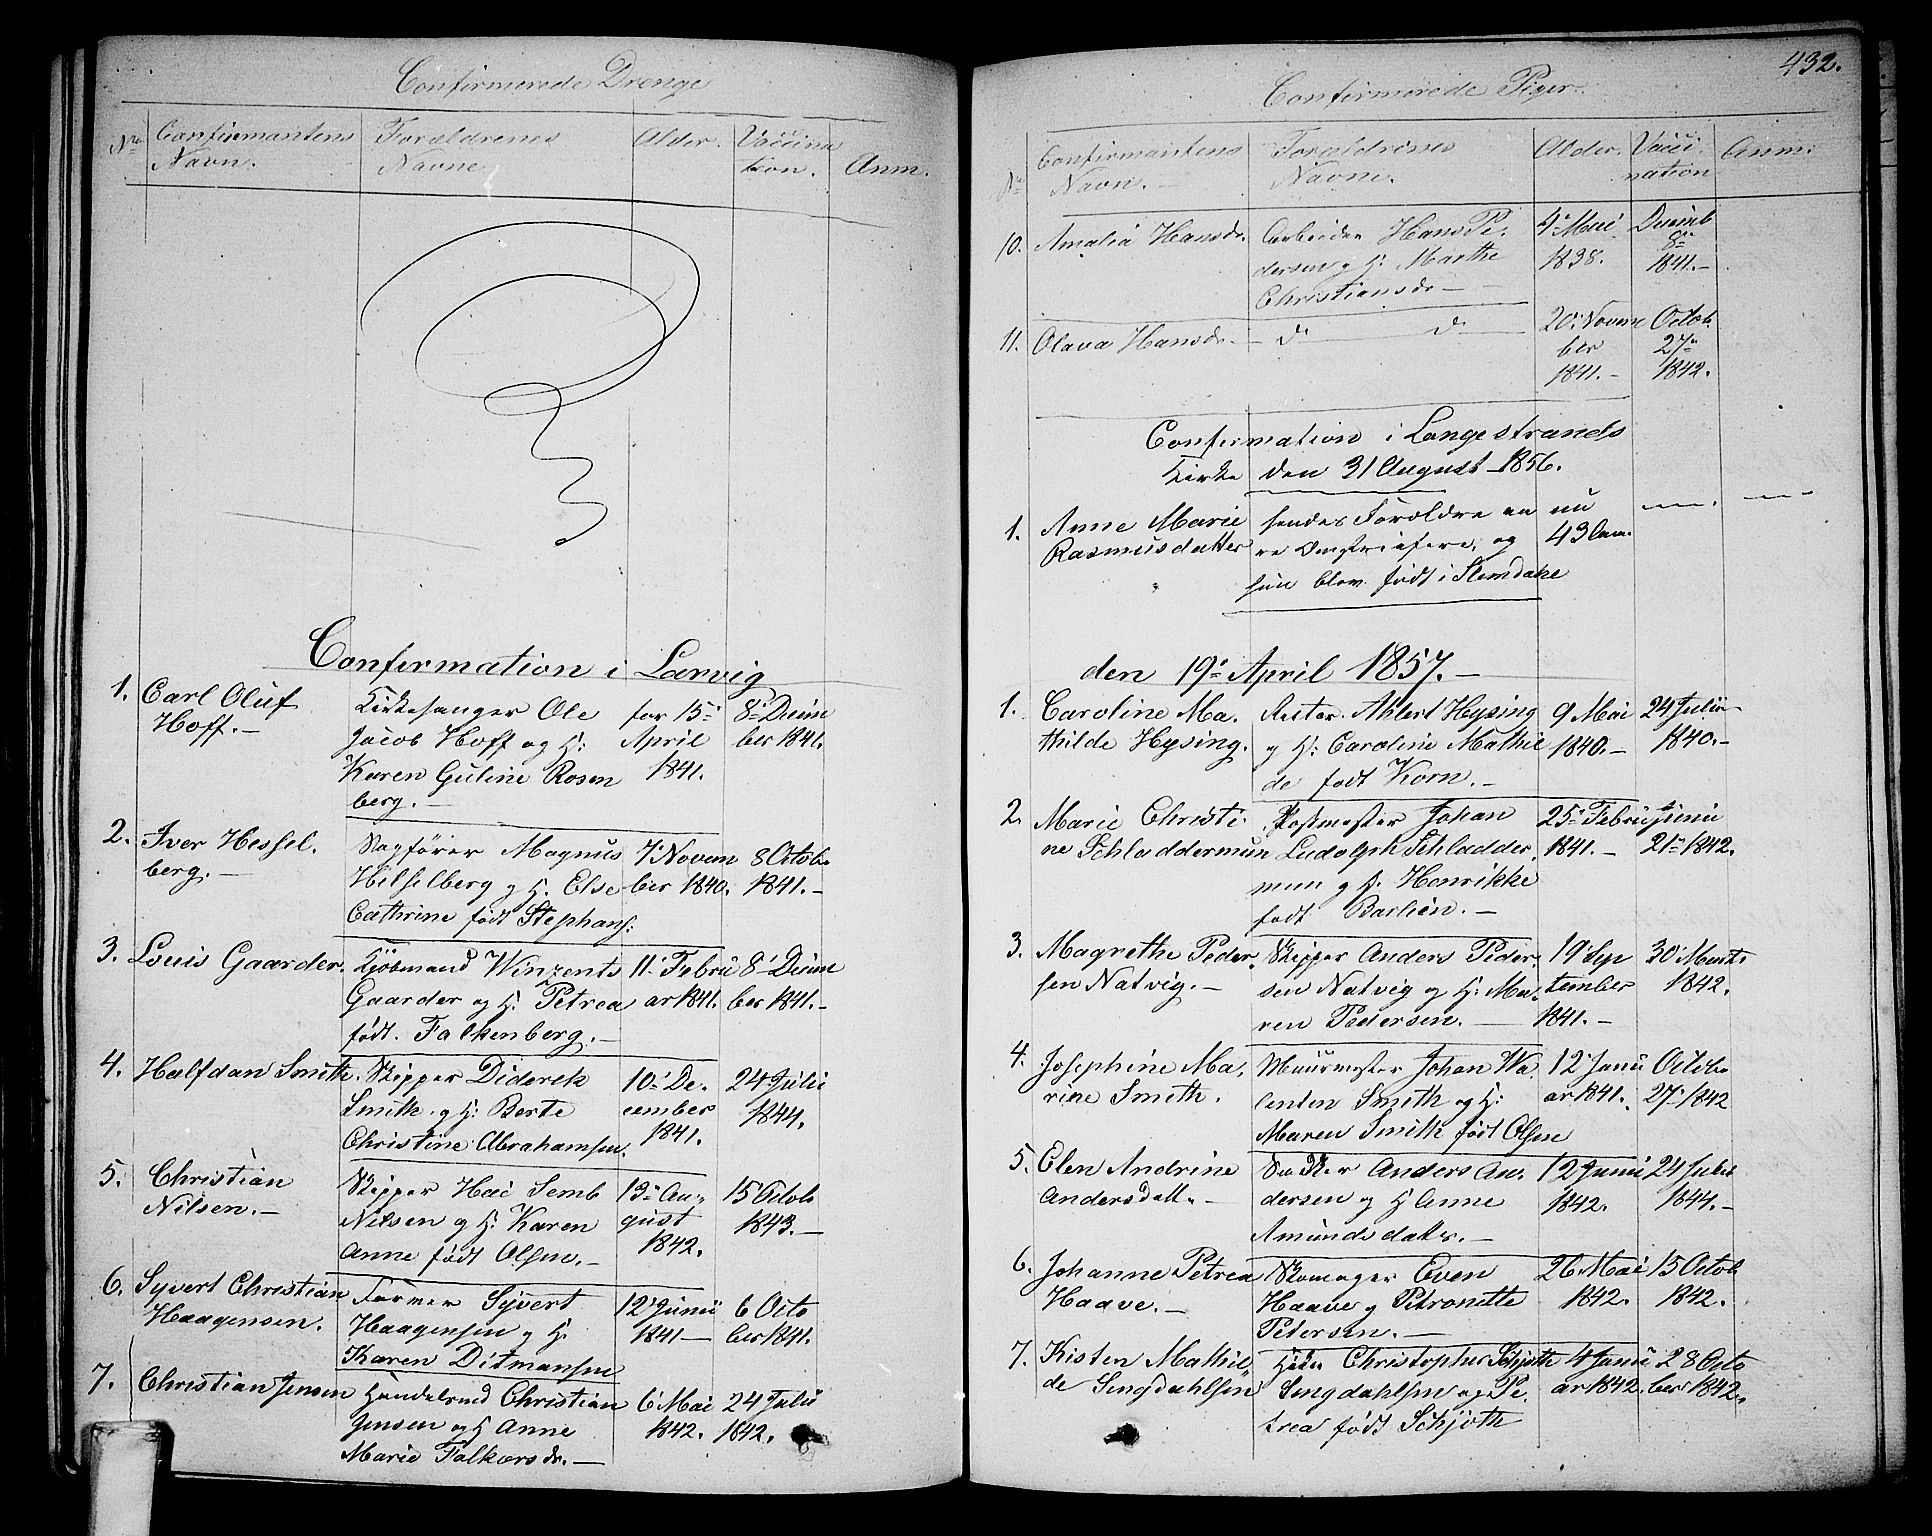 Confirmerede Drenge
No Confirmantens Navn.
Forældrenes Navne
Alder.
Vaccination.
Anm.
Confirmation i Larvig
1. Carl Oluf
Hoff.
Kirkesanger Ole
Jacob Hoff og H:
Karen Guline Rosen
berg.
15
April
1841.
8 Decem
ber 1841.
2. Iver Hessel.
berg.
Sagfører Magnus
Hesselberg og H. Else
Cathrine født Stephans:
7 Novem
ber 1840.
8 Octob
1841.
3. Louis Gaarder.
Kjøbmand Winzents
Gaarder og H: Petrea
født. Falkenberg.
11 Febru
ar 1841.
8 Decem
ber 1841.
4. Halfdan Smith.
Skipper Diderek
Smith og H: Berte
Christine Abrahamsen.
10 De.
cember
1841.
24 Julii
1844.
5. Christian
Nilsen.
Skipper Semb
Nilsen og H: Karen
Anne født Olsen.
13 Au
gust
1842.
15 Octob
1843.
6. Syvert Christian
Haagensen.
Former Syvert
Haagensen og H.
Karen Ditmansen
12 Junii
1841
6 Octo
ber 1841.
7. Christian Jensen
Handelsmd Christian
Jensen og H Anne
Marie Falkorsdr.
6 Mai
1842.
24 Julii
1842.
432.
Confirmerede Piger.
No Confirmantens Navn.
Forældrenes Navne.
Alder.
Vacci
nation
Anm:
10. Amalia Hansdr.
Arbeider Hans Pe.
dersen og H: Marthe
Christiansdr
4 Mai
1838.
Decemb
8
1841.
11. Olava Hansdr.
d d
20 Novem
ber
1841.
Octob.
27
1842.
Confermation i Langestrands
Kirke den 31 August 1856.
1. Anne Marie
Rasmusdatter
hendes Forældre en nu
43 Aar.
og
hun blev født i Slemdahl
den 19 April 1857.
1. Caroline Ma.
thilde Hysing.
Ahlert Hysing
og H: Caroline Mathil
de født Korn.
9 Mai
1840.
24 Julii
1840.
2. Marie Christi
ne Schladdermun
Postmester Johan
Ludolph Schladder.
mun og H. Henrikke
født Barlien.
25 Febru
1841.
Junii
21 1842.
3. Magrethe Peder.
sen Natvig.
Skipper Anders Peder.
sen Natvig og H: Ma.
ren Pedersen.
19 Sep
tember
1841.
30 Marts
1842.
4. Josephine Ma.
rine Smith.
Muurmester Johan Va
lentin Smith og H:
Maren Smith født Olsen
12 Janu
ar 1841.
Octobr
27 1842
5. Elen Andrine
Andersdatt.
Anders An.
dersen og H Anne
Amundsdatter.
12 Junii
1842.
24 Julii
1844.
6. Johanne Petrea
Haave.
Skomager Even
Haave og Petronelle
Petersen.
26 Mai
1842.
15 Octob
1842.
7. Kisten Mathil
de Singdahlsen
Christopher Schjøtte
Singdahlsen og Pe.
trea født Schjøth
4 Janu
ar 1842.
28 Octo
ber 1842.